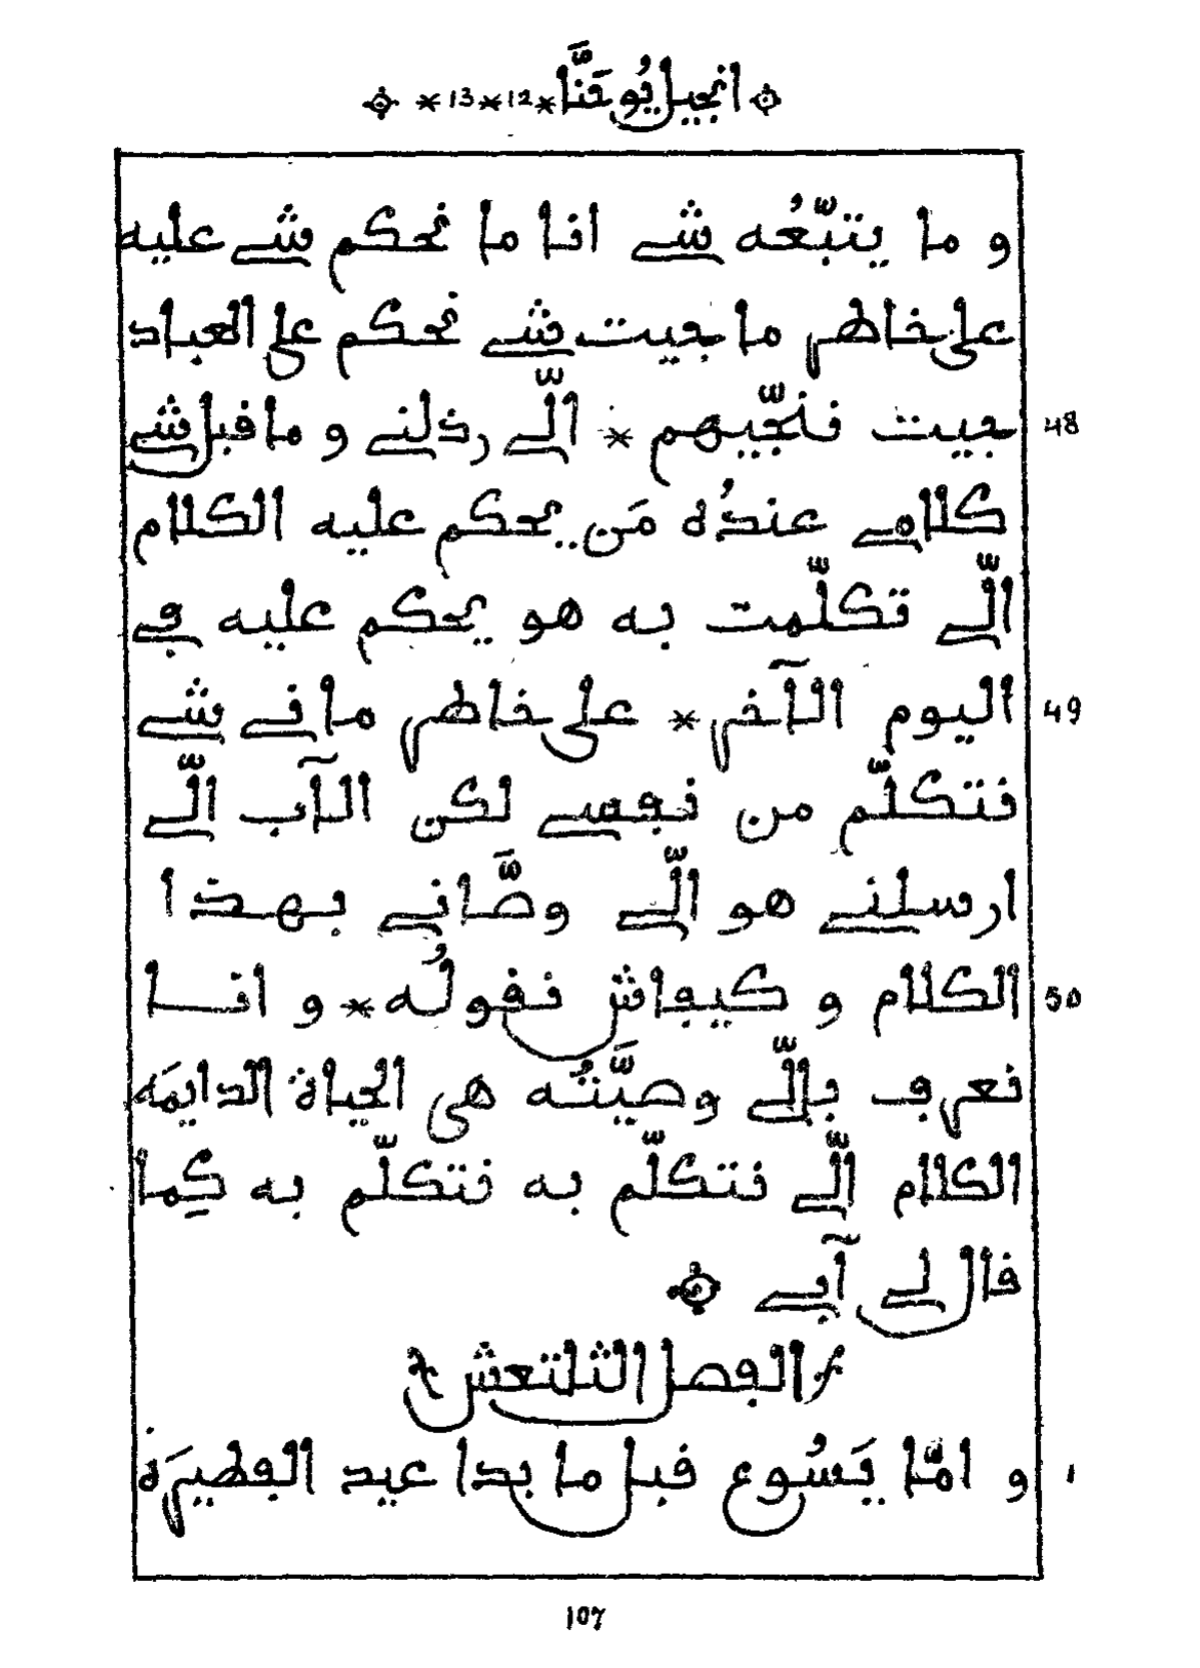 انجيل يُوحَنَّا * 12 * 13 *
و ما يتبّعُه شي انا ما نحكم شي عليه
على خاطر ما جيت شي نحكم على العباد
48 جيت فنجّيهم * الّي رذلني و ما قبل شي
كلامي عندُه مَن يحكم عليه الكلام
الّي تكلّمت به هو يحكم عليه في
49 اليوم الآخر * على خاطر ما ني شي
نتكلّم من نفسي لكن الآب الّي
ارسلني هو الّي وصَّاني بهذا
50 الكلام و كيفاش نقولُه * و انا
نعرف بالّي وصيَّتُه هي الحياة الدايمَه
الكلام الّي نتكلّم به نتكلّم به كِما
قال لي آبي
الفصل الثلتعش
1 و امّا يَسُوع قبل ما بدا عيد الفطيرَة
107